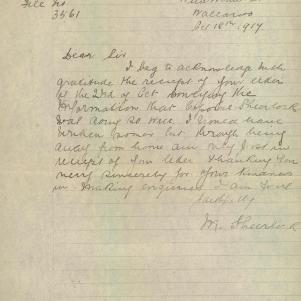 File No
3561
Wallaroo
Oct 18th 1917
Dear Sir
I beg to acknowledge with
gratitude the receipt of your letter
of the 23rd of Oct conveying the
information that Corporal Sheerlock
was doing so well I would have
written sooner but through being
away from home am only just in
receipt of your letter thanking you
very sincerely for your kindness
in making enquiries I am yours
faithfully
M. Sheerlock